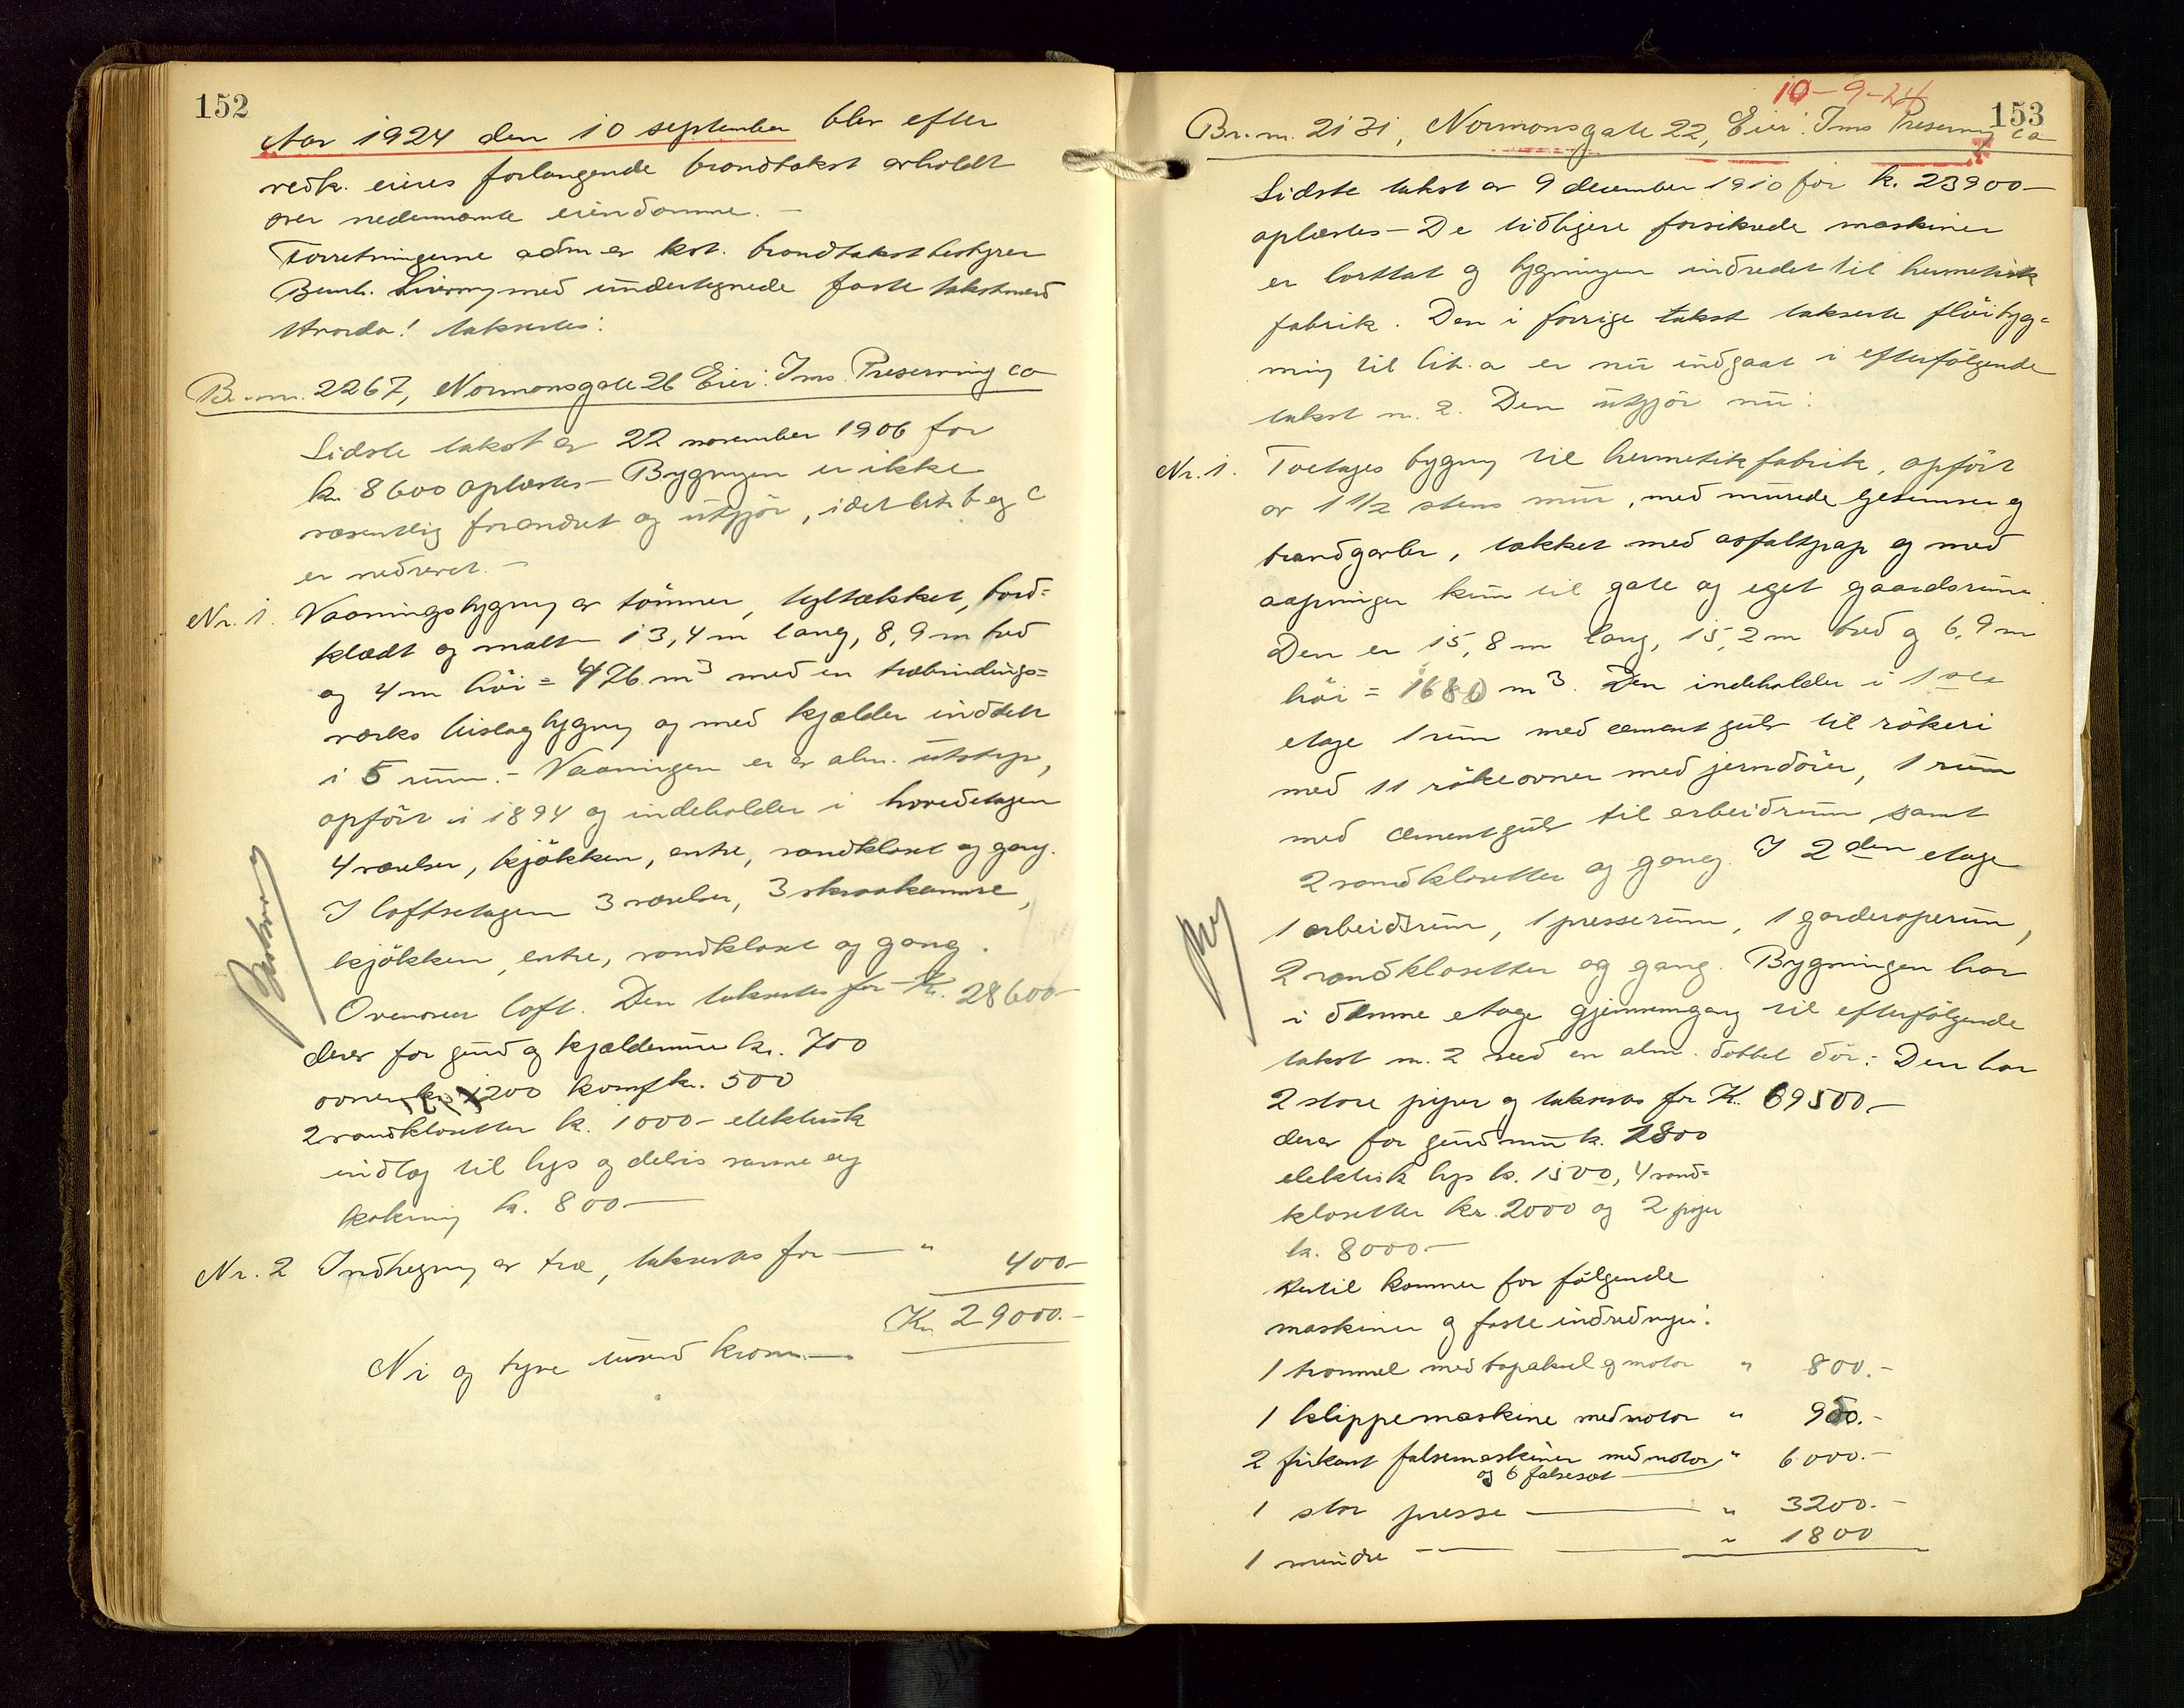 152
Aar 1924 den 10 september blev efter
vedk. eieres forlangende brandtakst avholdt
over nedennævnte eiendomme. —
Forretningerne adm. av kst. brandtakstbestyrer
Bernh. med undertegnede faste takstmænd
Hvorda! takseredes:
Br. nr. 2267, Normansgate 26 Eier: Ims Preserving co
Sidste takst av 22 november 1906 for
kr. 8600 oplæstes — Bygningen er ikke
væsentlig forandret og utgjør, idet lit. b og c
er nedrevet. —
Nr. 1. Vaaningsbygning av tömmer, tegltækket, bord=
klædt og malt 13,4 m lang, 8,9 m bred
og 4 m höi = 476 m³ med en træbindings=
verks bislagbygning og med kjælder inddelt
i 5 rum. — Vaaningen er av alm. utstyr,
opfört i 1894 og indeholder i hovedetagen
4 værelser, kjökken, entre, vandkloset og gang.
I loftsetagen 3 værelser, 3 skraakamre,
kjökken, entre, vandkloset og gang.
Ovenover loft. Den takseredes for Kr. 28600—
derav for grund og kjældermur kr. 700
ovner kr. 1200 komf kr. 500
2 vandklosetter kr. 1000 — elektrisk
indlæg til lys og delvis varme og
kokning kr. 800 —
Nr. 2 Indhegning av træ, takseredes for — " 400—
Kr. 29000.—
Ni og tyve tusend kroner. —
10-9-24
153
Br. nr. 2131, Normansgate 22, Eier: Ims Preserving co
Sidste takst av 9 december 1910 for kr. 23900—
oplæstes — De tidligere forsikrede maskiner
er borttat og bygningen indredet til hermetisk
fabrik. Den i forrige takst takserte flöibyg=
ning til lit. a er nu indgaat i efterfölgende
takst nr. 2. Den utgjör nu:
Nr. 1. Toetages bygning til hermetikfabrik, opfört
av 1 1/2 stens mur, med murede gesimser og
brandgavler, tækket med asfaltpap og med
aapninger kun til gate og eget gaardsrum.
Den er 15,8 m lang, 15,2 m bred og 6,9 m
höi = 1680 m³. Den indeholder i 1ste
etage 1 rum med cementgulv til rökeri
med 11 rökeovner med jerndörer, 1 rum
med cementgulv til arbeidsrum samt
2 vandklosetter og gang. I 2den etage
1 arbeidsrum, 1 presserum, 1 garderoperum,
2 vandklosetter og gang. Bygningen har
i denne etage gjennemgang til efterfölgende
takst nr. 2 med en alm. dobbel dör. Den har
2 store piper og takseredes for Kr. 69500.—
derav for grundmur kr. 2800
elektrisk lys kr. 1500, 4 vand=
klosetter kr. 2000 og 2 piper
kr. 8000.—
Hertil kommer for fölgende
maskiner og faste indredninger:
1 trommel med og motor " 800.—
1 klippemaskine med motor " 900.—
2 firkant falsemaskiner med motor " 6000.—
og 6 falsesæt
1 stor presse — " 3200.—
1 mindre — — " 1800